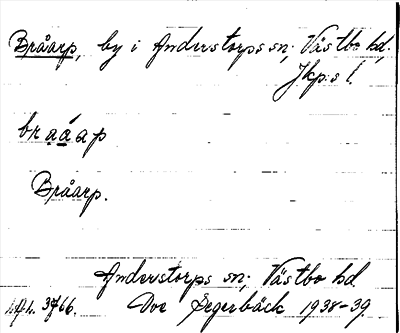 Bråarp, by i Anderstorps sn; Västbo hd.
Jkp:s l.
braáap
Bråarp.
Anderstorps sn; Västbo hd.
3766. Ove Segerbäck 1938-39